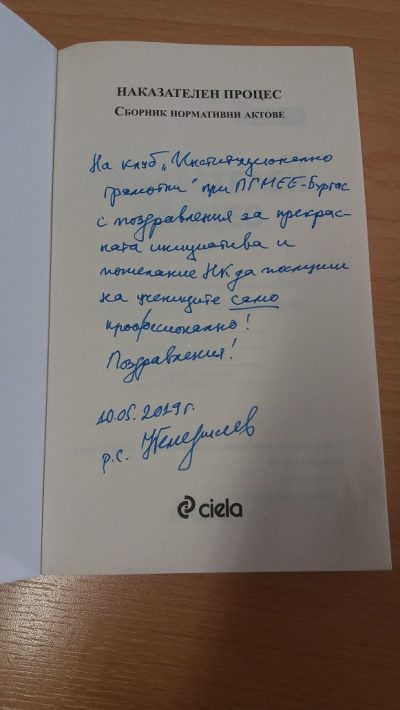 НАКАЗАТЕЛЕН ПРОЦЕС
СБОРНИК НОРМАТИВНИ АКТОВЕ
На клуб „Институционално
грамотни" при ПГМЕЕ-Бургас
с поздравления за прекрас-
ната инициатива и
пожелание НК да посещи
на учениците само
професионално!
Поздравления!
10.05.2019г.
р.с.
ciela